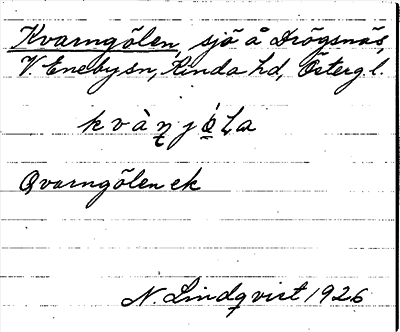 Kvarngölen, sjö å Drögsnäs,
V. Eneby sn, Kinda hd, Östergl.
Qvarngölen ek
N. Lindqvist 1926